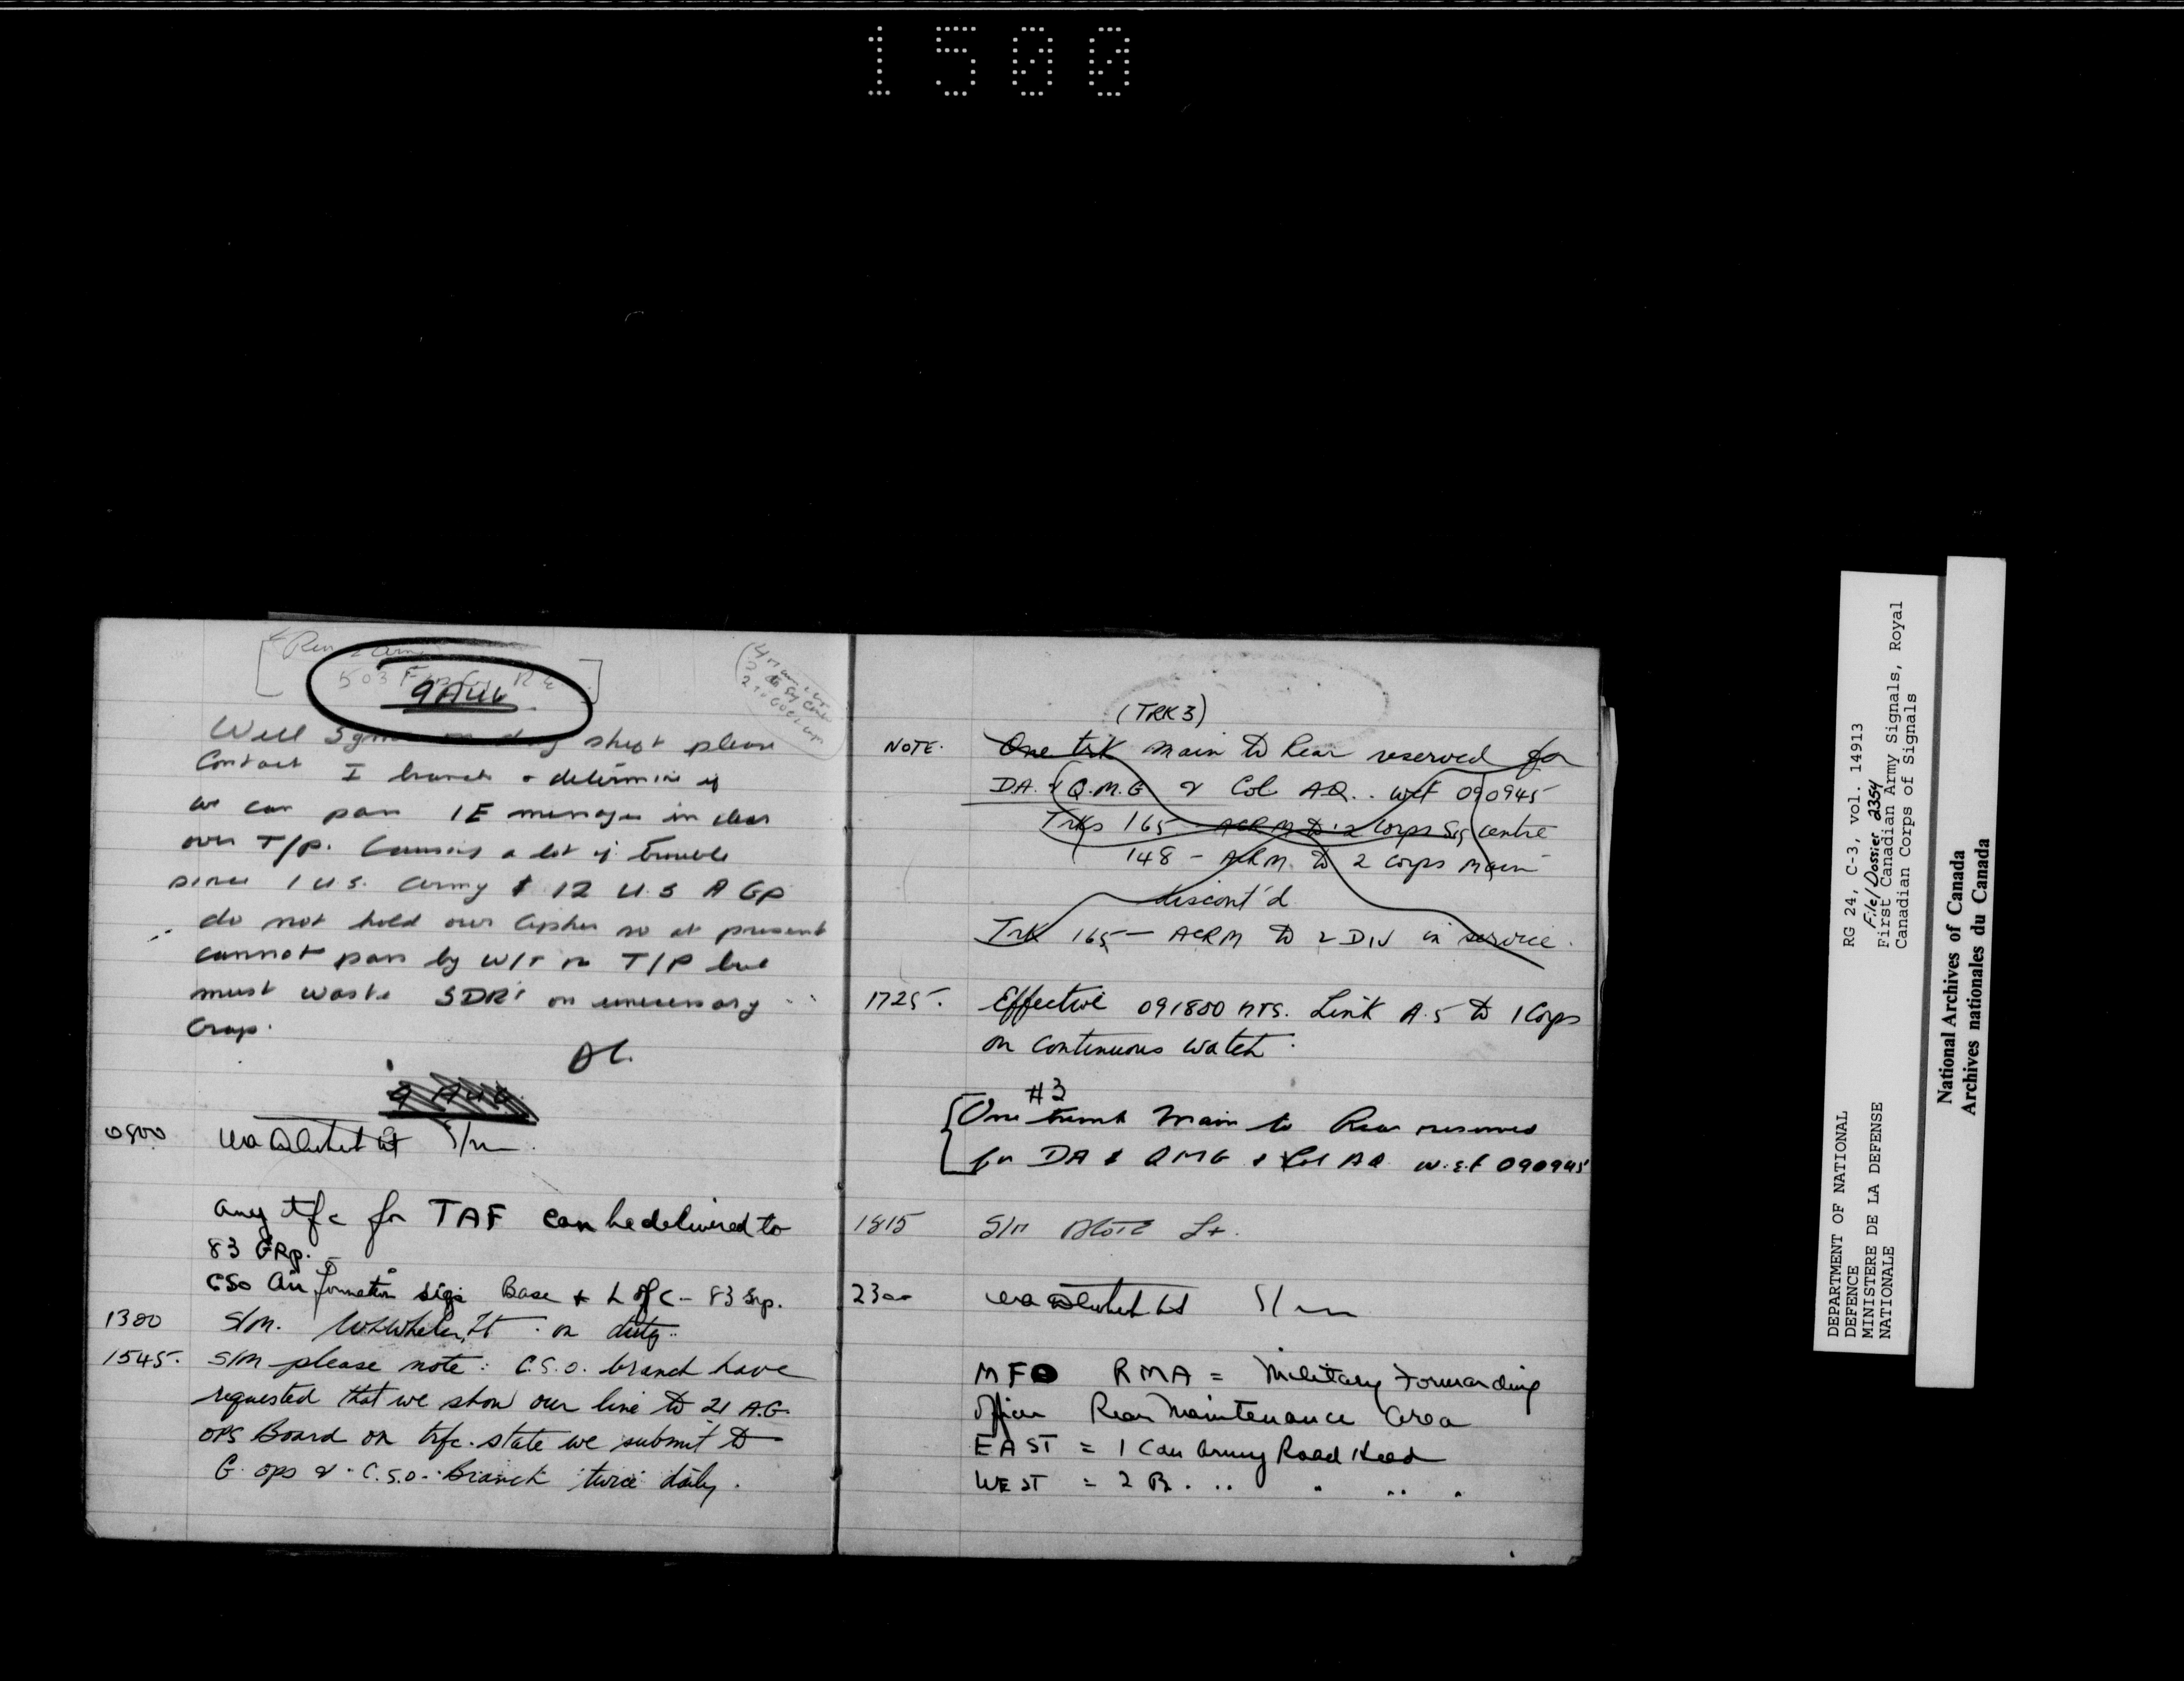 1500
9 AUG
Will Sgmr on day shift please
Contact I branch & determine if
we can pass IE messages in clear
over T/P. Causing a lot of trouble
since 1 U.S. Army & 12 U.S A GP
do not hold our Cipher so at present
cannot pass by W/T or T/P but
must waste SDR's on unecessary
Crap.
9 AUG.
0800 Lt S/m.
any tfc for TAF can be delivered to
83 GRp.
CSO Air formation sigs Base & L of C - 83 Grp.
1300 S/m. Lt. on duty.
1545. S/m please note: C.S.O. branch have
requested that we show our line to 21 A.G.
OPS Board on tfc. state we submit to
G. ops & C.S.O. Branch twice daily.
(TRK 3)
NOTE. One trk main to Rear reserved for
DA & Q.M.G & Col AQ.. wef 090945
Trks 165 ACRM to 2 Corps Sig centre
148 - ACRM to 2 Corps Main
discont'd
Trk 165 - ACRM to 2 DIV in service.
1725. Effective 091800 hrs. Link A.5 to 1 Corps
on continuous watch.
#3
One trunk Main to Rear reserved
for DA & QMG & Col AQ w.e.f 090945
1815 S/m Lt.
2300 Lt S/m
MFO RMA = Military Forwarding
Officer Rear Maintenance Area
EAST = 1 Can Army Road Head
WEST = 2 B. .. . .. .
DEPARTMENT OF NATIONAL
DEFENCE
MINISTERE DE LA DEFENSE
NATIONALE
RG 24, C-3, vol. 14913
File/Dossier 2354
First Canadian Army Signals, Royal
Canadian Corps of Signals
National Archives of Canada
Archives nationales du Canada